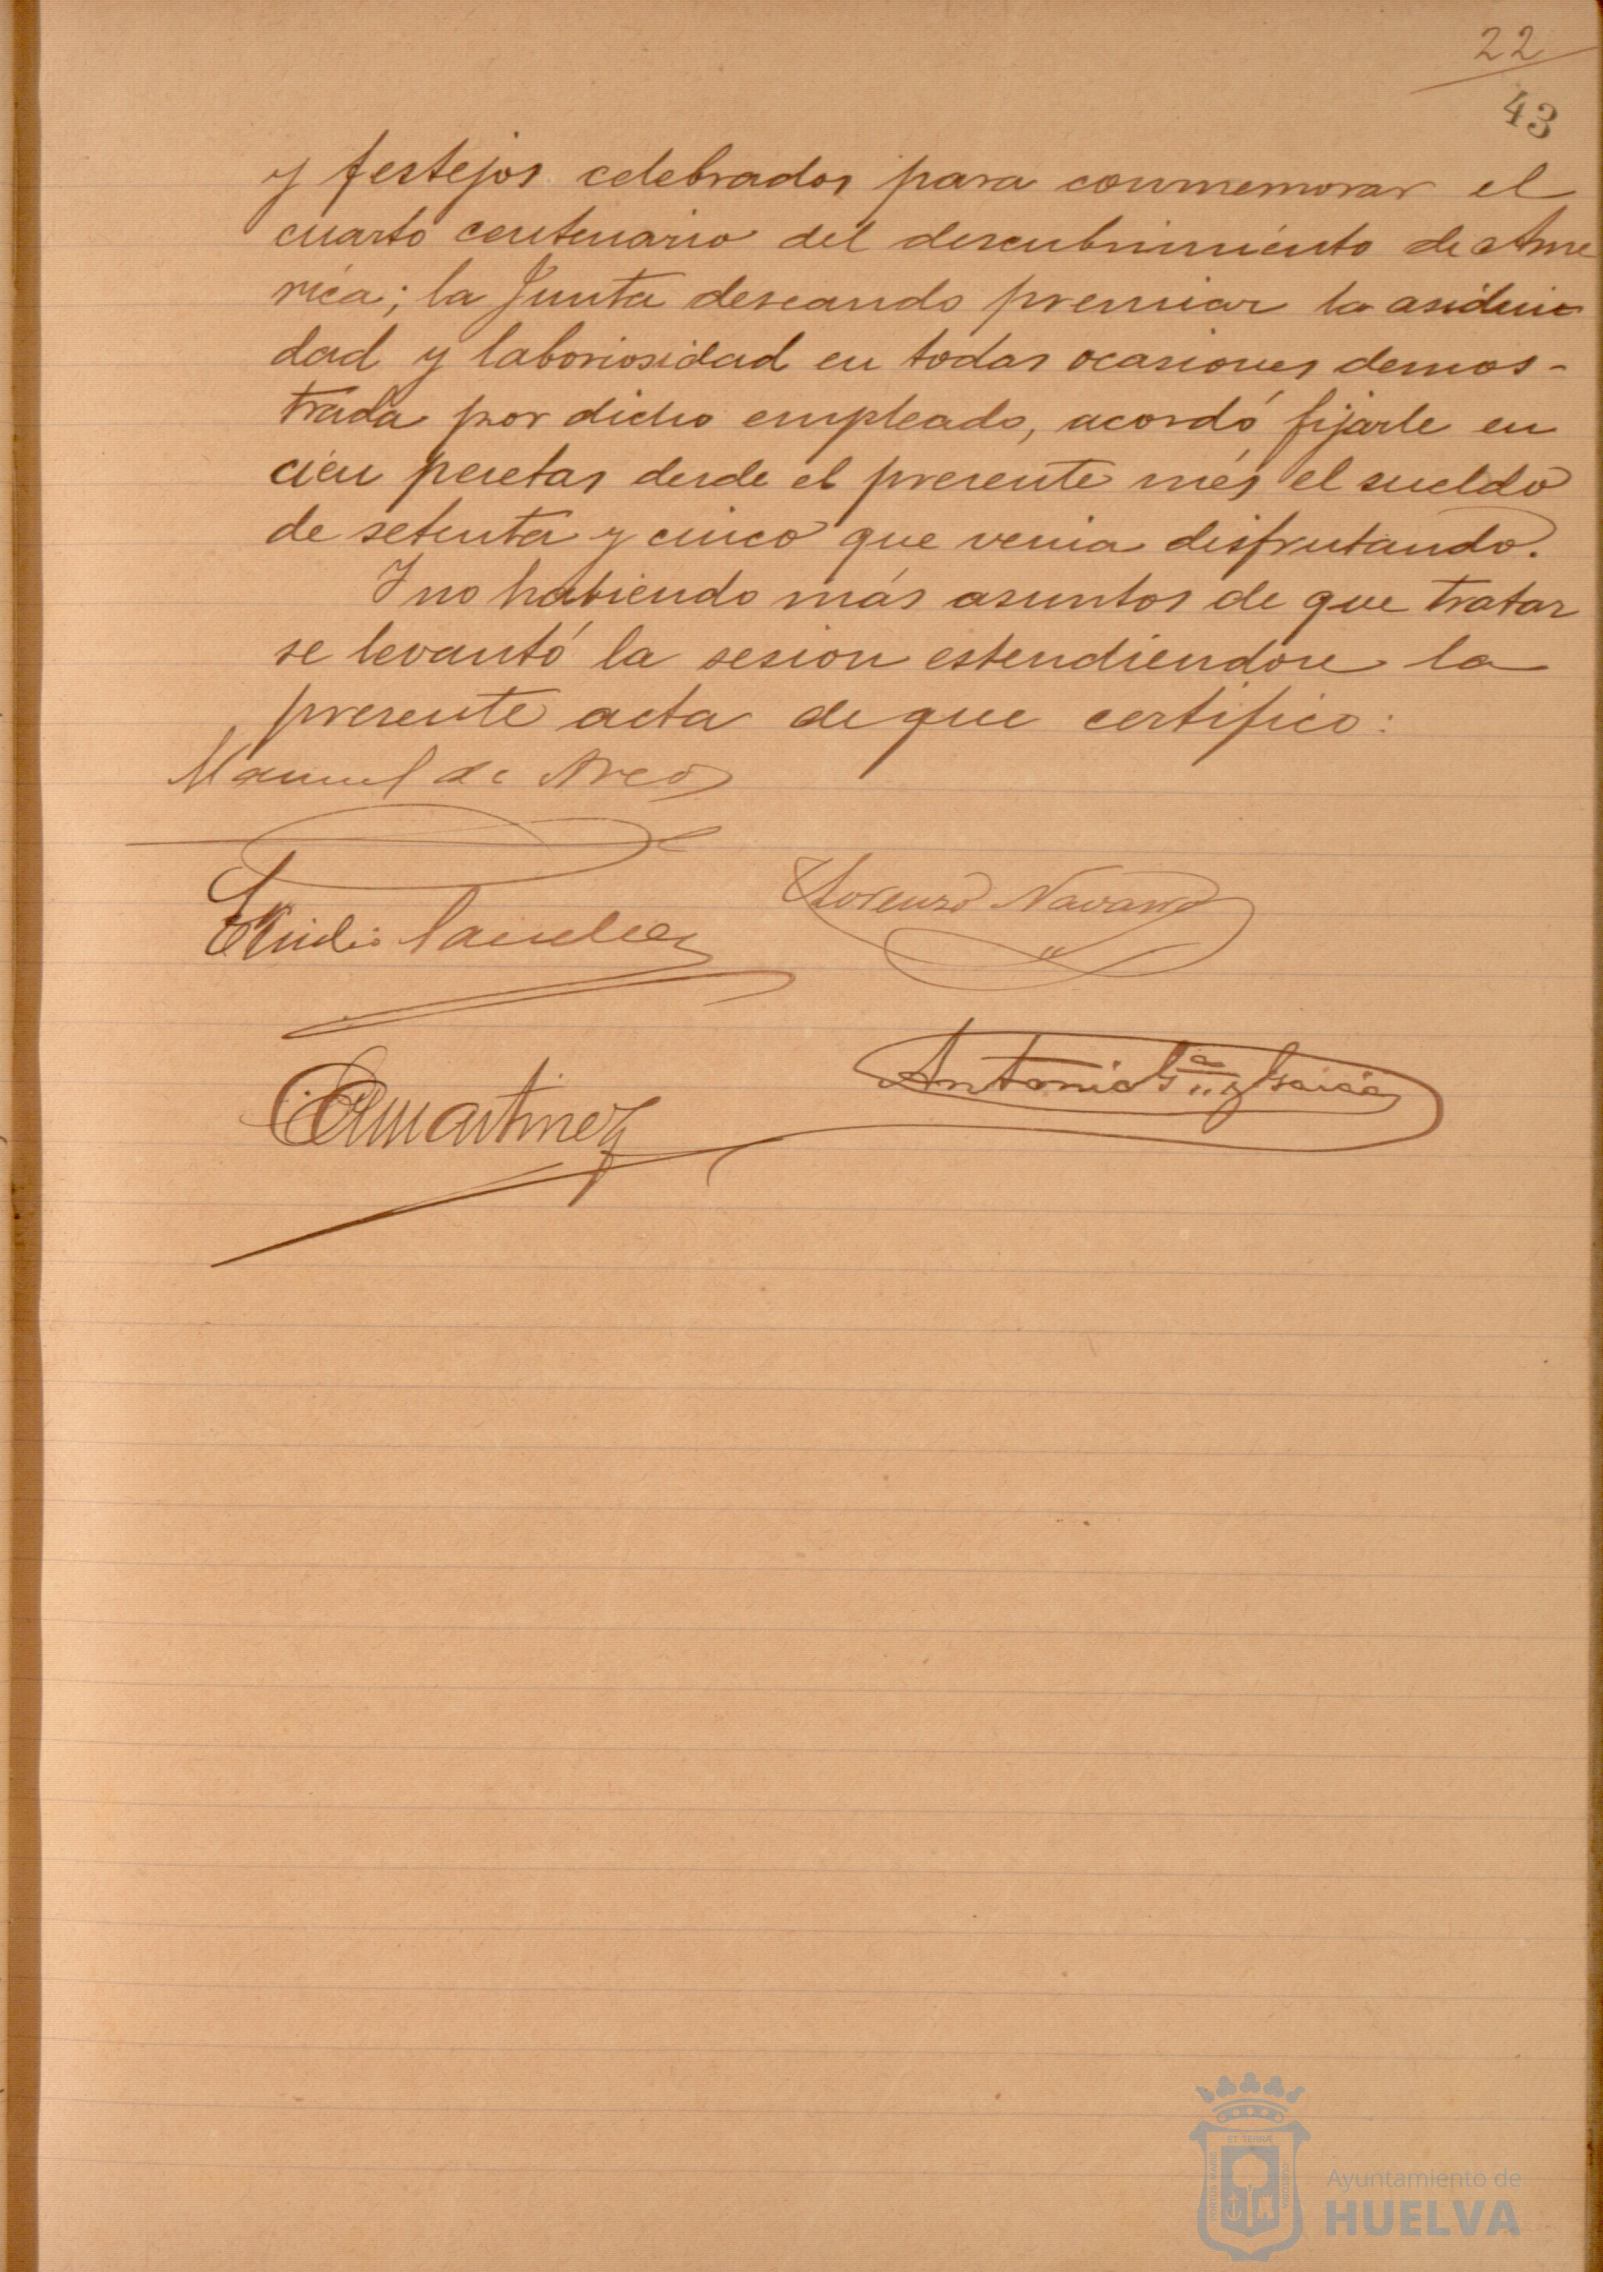 22
43
y festejos celebrados para conmemorar el
cuarto centenario del descubrimiento de Ame
rica; la Junta deseando premiar la asidui
dad y laboriosidad en todas ocasiones demos-
trada por dicho empleado, acordó fijarle en
cien pesetas desde el presente més el sueldo
de setenta y cinco que venia disfrutando.
Y no habiendo más asuntos de que tratar
se levantó la sesion estendiendose la
presente acta de que certifico:
Manuel de
Emilio
Lorenzo Navarro
Martinez
Antonio Gª y García
ET TERRÆ
PORTUS MARIS
CUSTODIA
Ayuntamiento de
HUELVA